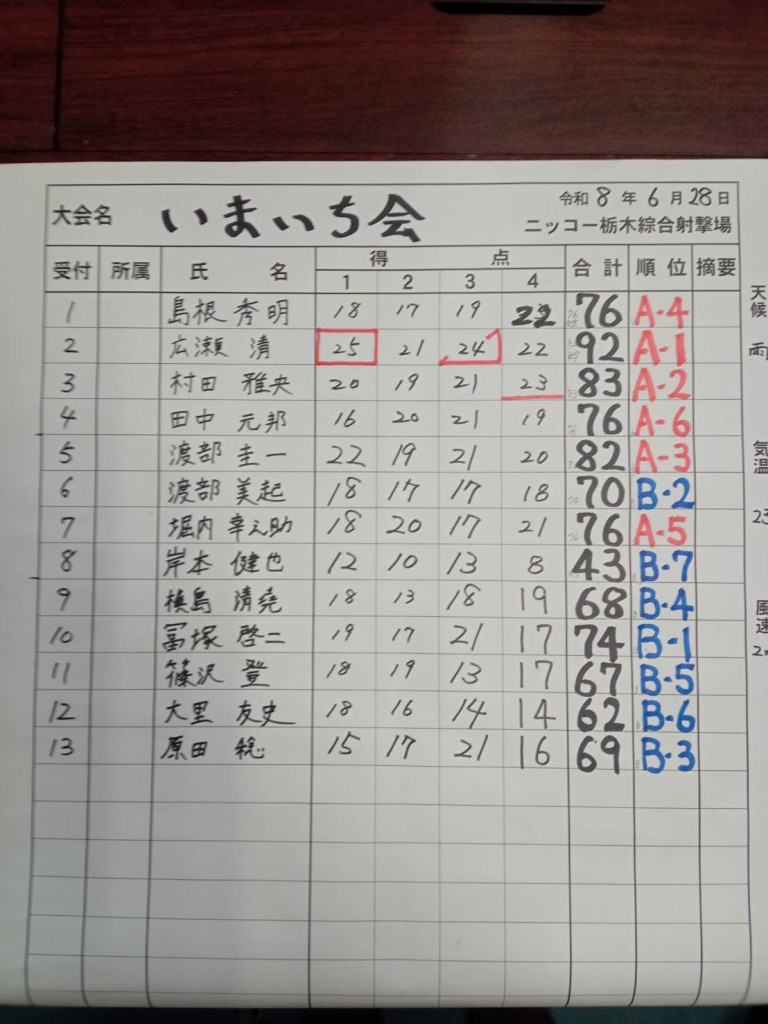 大会名 いまいち会 令和8年6月28日
ニッコー栃木綜合射撃場
受付 所属 氏名 得点 合計 順位 摘要
1 2 3 4
1 島根 秀明 18 17 19 22 76 A-4
2 広瀬 清 25 21 24 22 92 A-1
3 村田 雅央 20 19 21 23 83 A-2
4 田中 元邦 16 20 21 19 76 A-6
5 渡部 圭一 22 19 21 20 82 A-3
6 渡部 美起 18 17 17 18 70 B-2
7 堀内 幸之助 18 20 17 21 76 A-5
8 岸本 健也 12 10 13 8 43 B-7
9 槙島 清尭 18 13 18 19 68 B-4
10 冨塚 啓二 19 17 21 17 74 B-1
11 篠沢 登 18 19 13 17 67 B-5
12 大里 友史 18 16 14 14 62 B-6
13 原田 稔 15 17 21 16 69 B-3
天候
雨
気温
23
風速